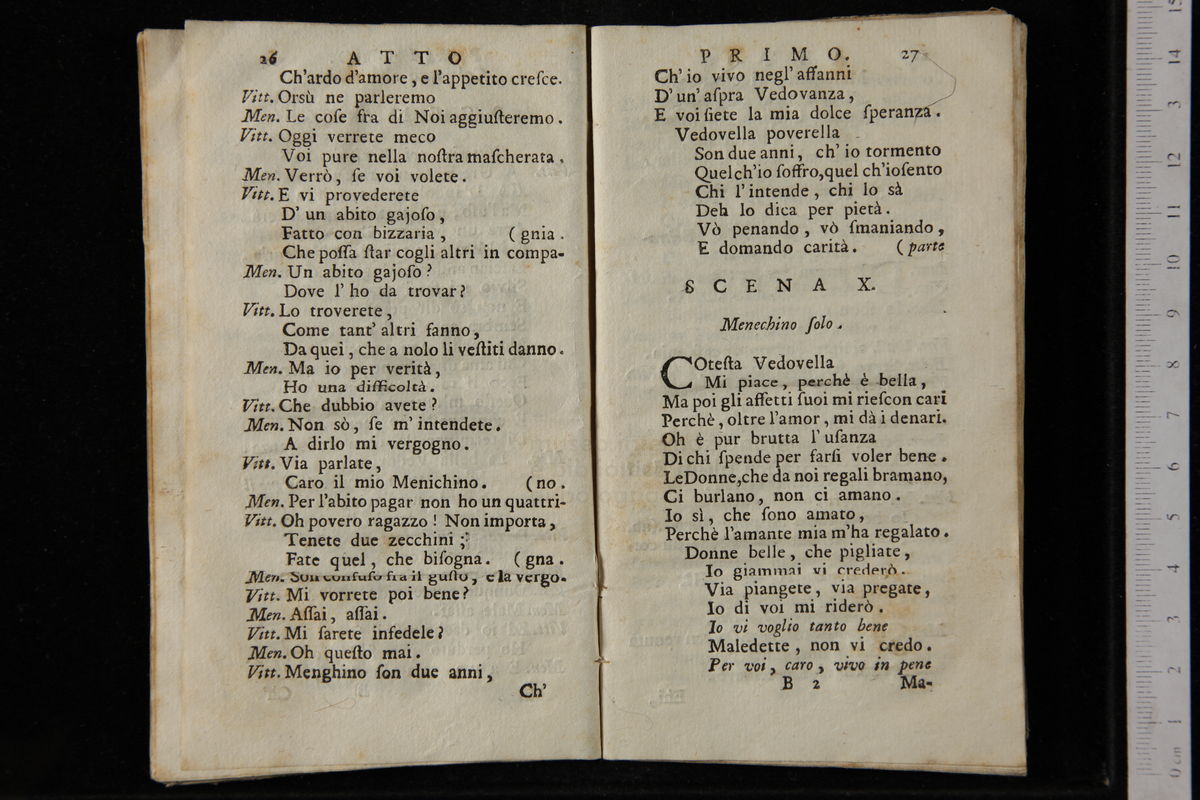 26 A T T O
Ch'ardo d'amore, e l'appetito creſce.
Vitt. Orsù ne parleremo
Men. Le coſe fra di Noi aggiuſteremo.
Vitt. Oggi verrete meco
Voi pure nella noſtra maſcherata.
Men. Verrò, ſe voi volete.
Vitt. E vi provederete
D' un abito gajoſo,
Fatto con bizzaria, (gnia.
Che poſſa ſtar cogli altri in compa-
Men. Un abito gajoſo?
Dove l' ho da trovar?
Vitt. Lo troverete,
Come tant' altri fanno,
Da quei, che a nolo li veſtiti danno.
Men. Ma io per verità,
Ho una difficoltà.
Vitt. Che dubbio avete?
Men. Non sò, ſe m' intendete.
A dirlo mi vergogno.
Vitt. Via parlate,
Caro il mio Menichino. (no.
Men. Per l'abito pagar non ho un quattri-
Vitt. Oh povero ragazzo! Non importa,
Tenete due zecchini;
Fate quel, che biſogna. (gna.
Men. Son confuſo fra il guſto, e la vergo-
Vitt. Mi vorrete poi bene?
Men. Aſſai, aſſai.
Vitt. Mi ſarete infedele?
Men. Oh queſto mai.
Vitt. Menghino ſon due anni,
Ch'
P R I M O. 27
Ch' io vivo negl' affanni
D' un' aſpra Vedovanza,
E voi ſiete la mia dolce ſperanza.
Vedovella poverella
Son due anni, ch' io tormento
Quel ch'io ſoffro, quel ch'io ſento
Chi l' intende, chi lo sà
Deh lo dica per pietà.
Vò penando, vò ſmaniando,
E domando carità. (parte
S C E N A X.
Menechino ſolo.
COteſta Vedovella
Mi piace, perchè è bella,
Ma poi gli affetti ſuoi mi rieſcon cari
Perchè, oltre l'amor, mi dà i denari.
Oh è pur brutta l' uſanza
Di chi ſpende per farſi voler bene.
Le Donne, che da noi regali bramano,
Ci burlano, non ci amano.
Io sì, che ſono amato,
Perchè l'amante mia m'ha regalato.
Donne belle, che pigliate,
Io giammai vi crederò.
Via piangete, via pregate,
Io di voi mi riderò.
Io vi voglio tanto bene
Maledette, non vi credo.
Per voi, caro, vivo in pene
B 2 Ma-
0 cm 1 2 3 4 5 6 7 8 9 10 11 12 13 14 15